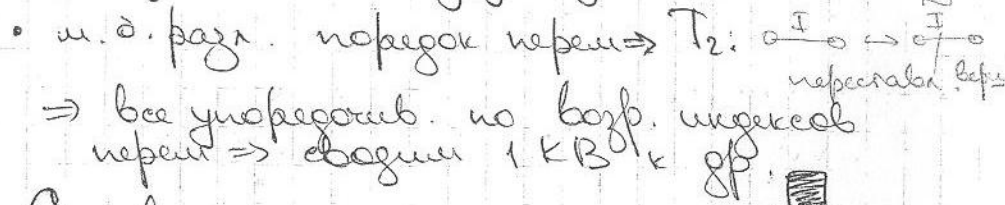 • м. д. разл. порядок перем ⇒ T₂: I ↔ I
переставл. верш
⇒ все упорядочив. по возр. индексов
перем ⇒ сводим 1 КВ к др.